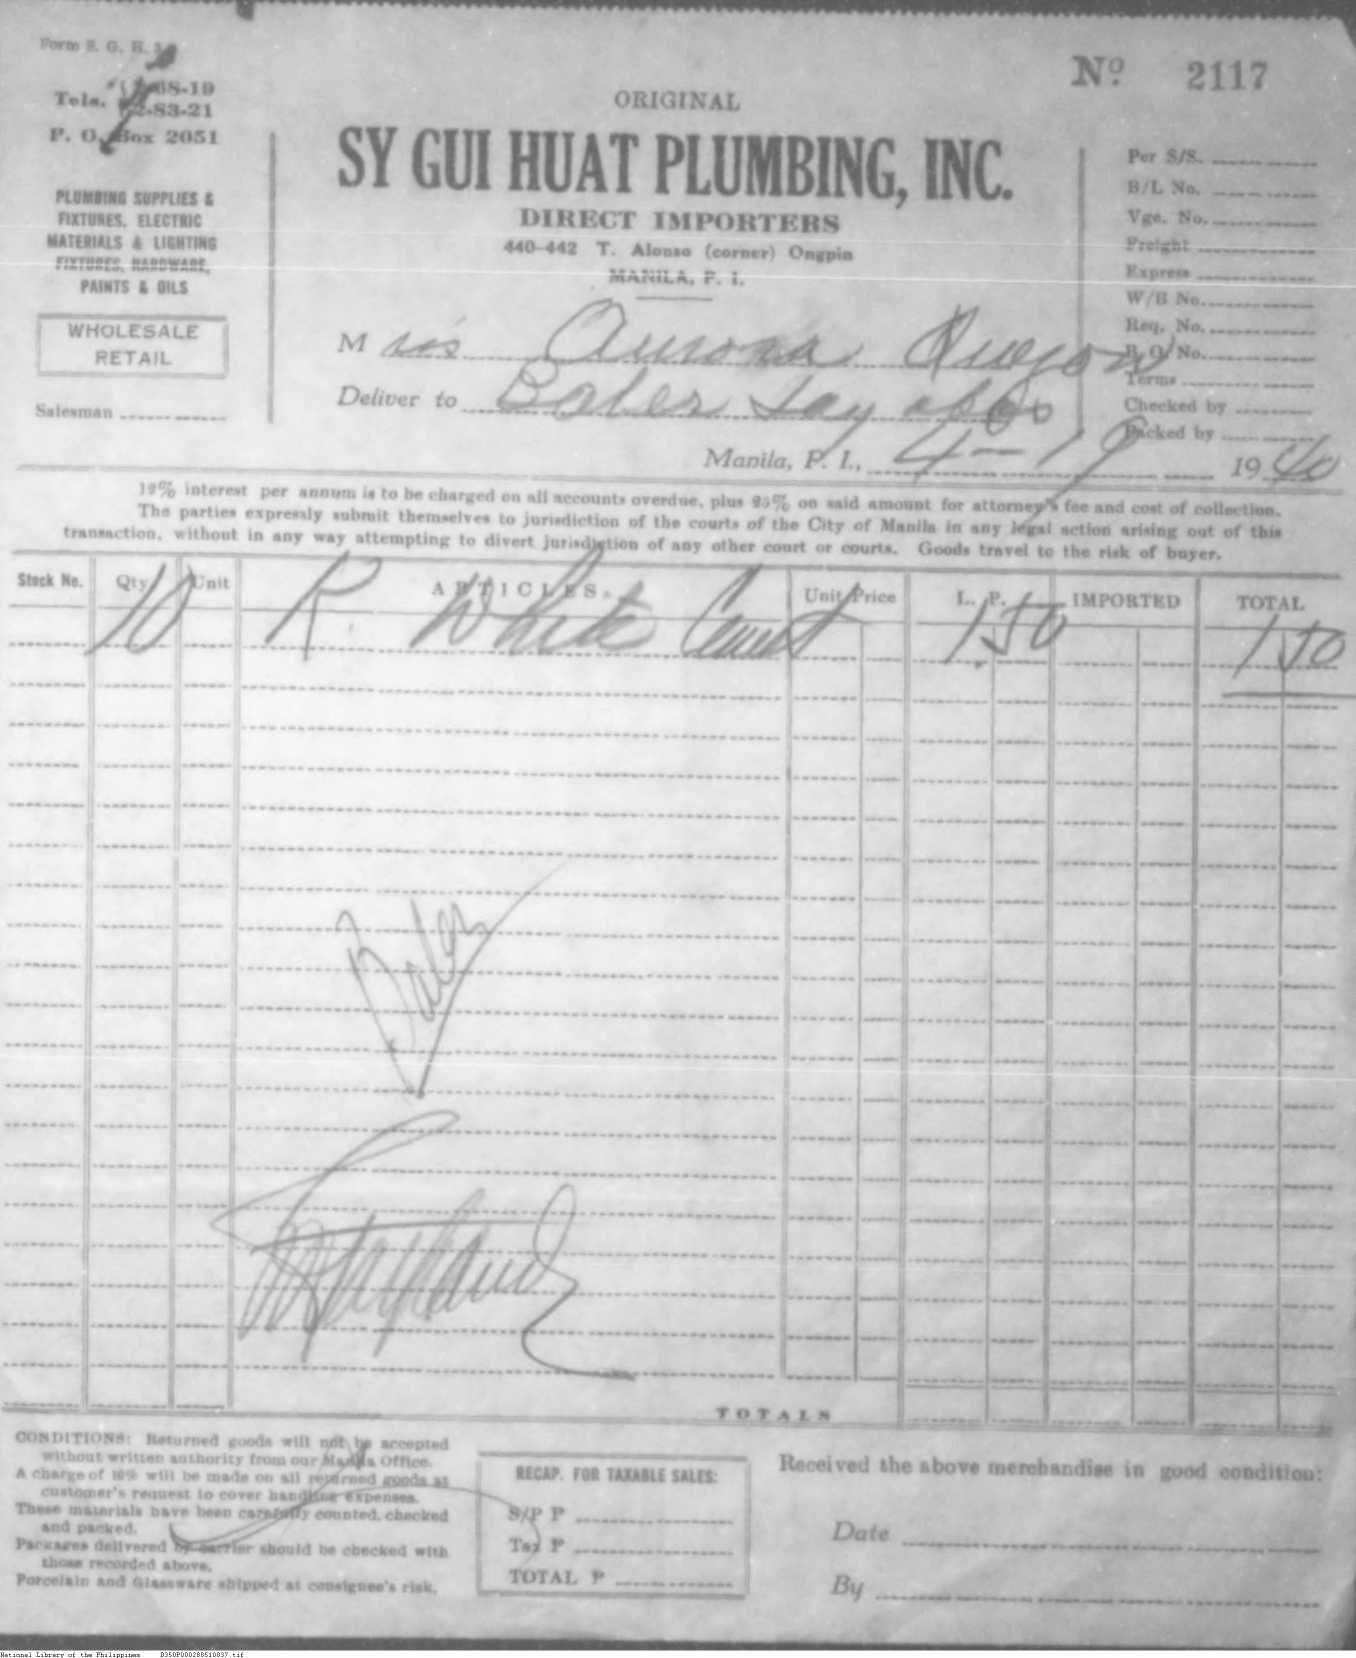 Form S. G. H.
Nº 2117
Tels. 08-19
2-83-21
P. O. Box 2051
ORIGINAL
SY GUI HUAT PLUMBING, INC.
DIRECT IMPORTERS
440-442 T. Alonso (corner) Ongpin
MANILA, P. I.
PLUMBING SUPPLIES &
FIXTURES, ELECTRIC
MATERIALS & LIGHTING
FIXTURES, HARDWARE,
PAINTS & OILS
WHOLESALE
RETAIL
Salesman
Per S/S.
B/L No.
Vge. No.
Freight
Express
W/B No.
Req. No.
P. O. No.
Terms
Checked by
Packed by
M rs Aurora Quezon
Deliver to Baler Tayabas
Manila, P. I., 4-19 1940
12% interest per annum is to be charged on all accounts overdue, plus 25% on said amount for attorney's fee and cost of collection.
The parties expressly submit themselves to jurisdiction of the courts of the City of Manila in any legal action arising out of this
transaction, without in any way attempting to divert jurisdiction of any other court or courts. Goods travel to the risk of buyer.
Stock No. Qty Unit ARTICLES Unit Price L. P. IMPORTED TOTAL
10 K White Cement 1 50 1 50
Baler
TOTALS
CONDITIONS: Returned goods will not be accepted
without written authority from our Manila Office.
A charge of 10% will be made on all returned goods at
customer's request to cover handling expenses.
These materials have been carefully counted, checked
and packed.
Packages delivered by carrier should be checked with
those recorded above.
Porcelain and Glassware shipped at consignee's risk.
RECAP. FOR TAXABLE SALES:
S/P P
Tax P
TOTAL P
Received the above merchandise in good condition:
Date
By
National Library of the Philippines B350P000288510837.tif